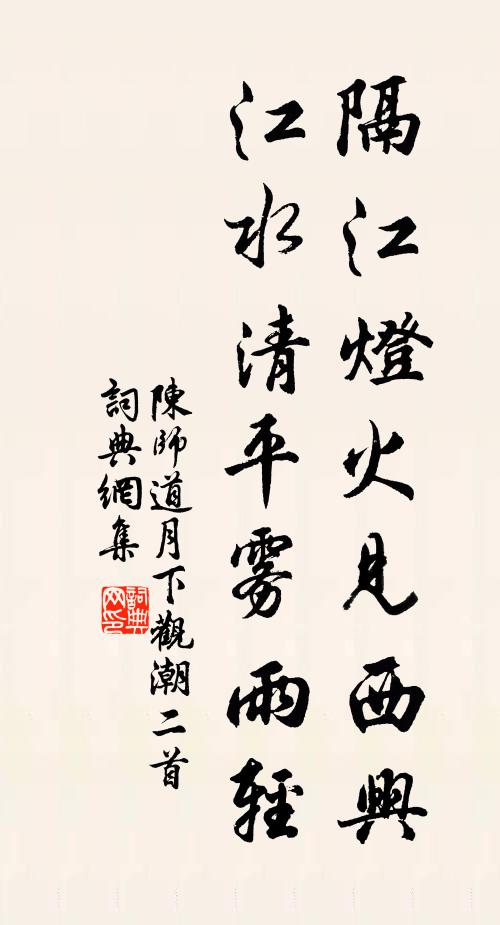 隔江燈火見西興
江水清平雾雨輕
陳師道月下觀潮二首
詞典網集
詞典网印